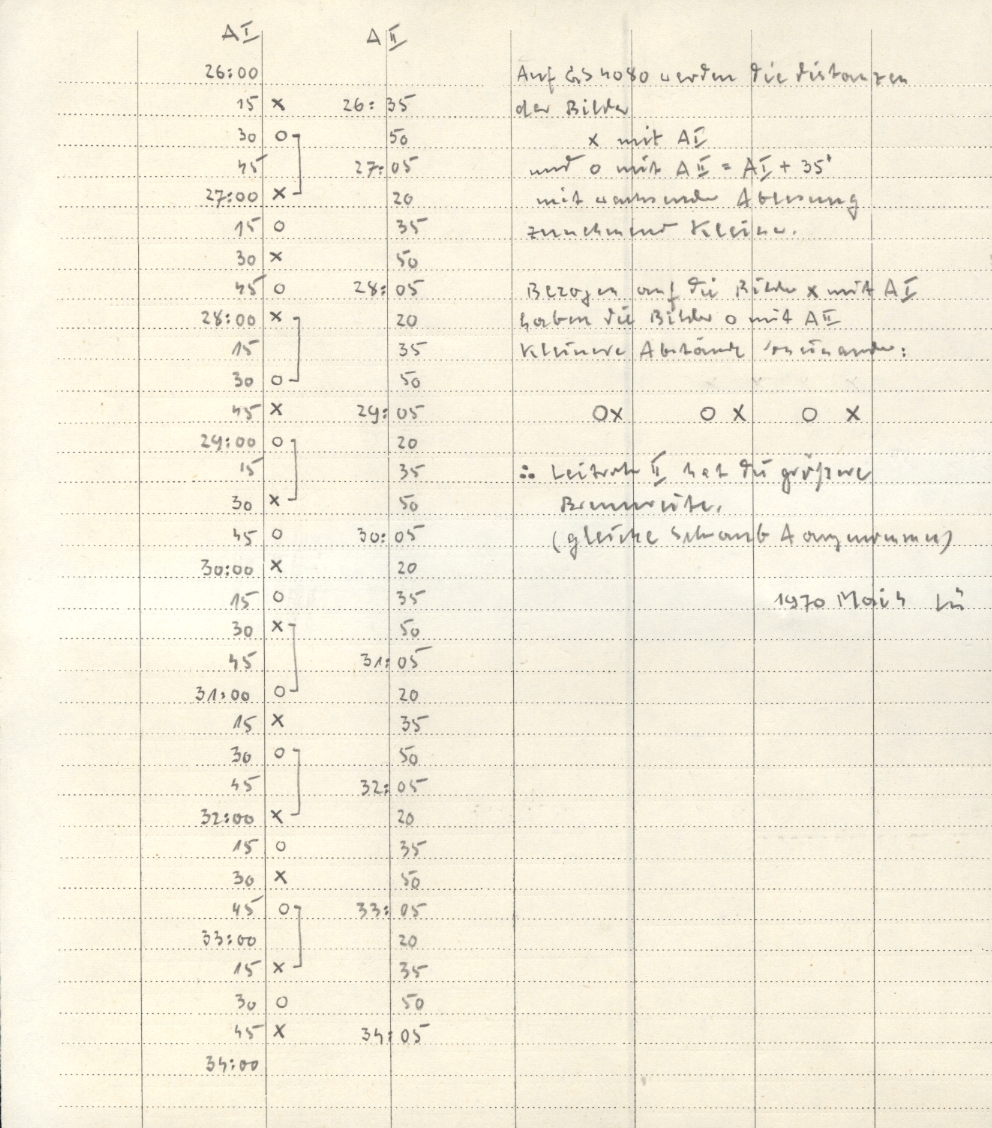 A I A II
26:00
15 x 26:35
30 o 50
45 27:05
27:00 x 20
15 o 35
30 x 50
45 o 28:05
28:00 x 20
15 35
30 o 50
45 x 29:05
29:00 o 20
15 35
30 x 50
45 o 30:05
30:00 x 20
15 o 35
30 x 50
45 31:05
31:00 o 20
15 x 35
30 o 50
45 32:05
32:00 x 20
15 o 35
30 x 50
45 o 33:05
33:00 20
15 x 35
30 o 50
45 x 34:05
34:00
Auf GS 4080 werden die Distanzen
der Bilder
x mit A I
und o mit A II = A I + 35'
mit wachsender Ablesung
zunehmend kleiner.
Bezogen auf die Bilder x mit A I
haben die Bilder o mit A II
kleinere Abstände voneinander:
ox o x o x
∴ Leitrohr II hat die größere
Brennweite.
(gleiche Schraube A angenommen)
1970 März